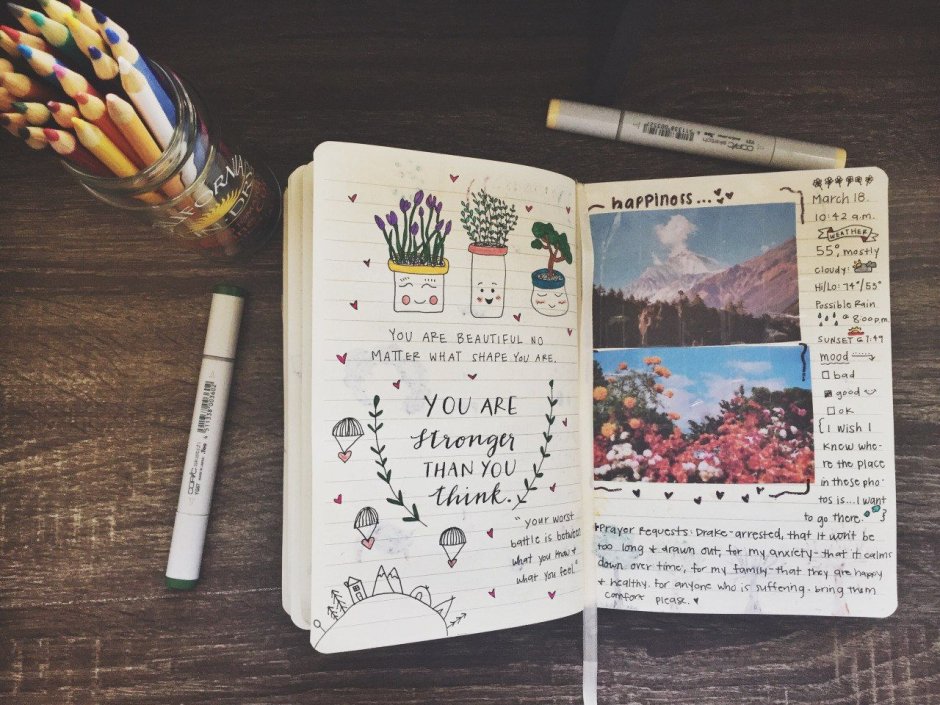 YOU ARE BEAUTIFUL NO
MATTER WHAT SHAPE YOU ARE.
YOU ARE
stronger
THAN YOU
think.
"your worst
battle is between
what you know &
what you feel"
happiness...
March 18.
10:42 a.m.
WEATHER
55°, mostly
cloudy.
Hi/Lo: 74°/55°
Possible Rain
@ 8:00 p.m
SUNSET @ 7:49
mood
bad
good
ok
{I wish I
knew whe-
re the place
in these pho-
tos is... I want
to go there. }
Prayer Requests: Drake-arrested, that it won't be
too long & drawn out, for my anxiety-that it calms
down over time, for my family-that they are happy
& healthy. for anyone who is suffering- bring them
comfort please.
COPIC sketch
COPIC sketch